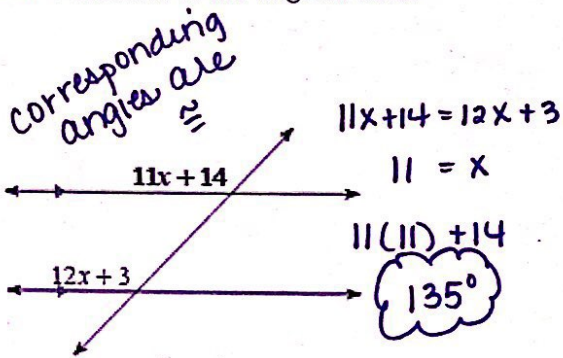 corresponding
angles are
≅
11x + 14
12x + 3
11x + 14 = 12x + 3
11 = x
11(11) + 14
135°